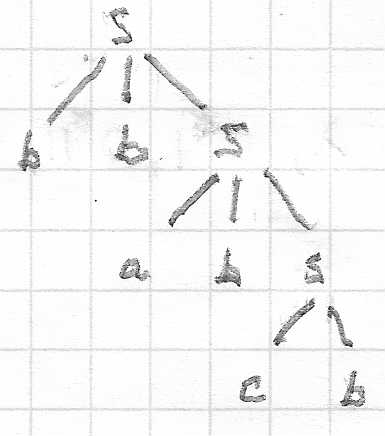 S
b b S
a b S
c b